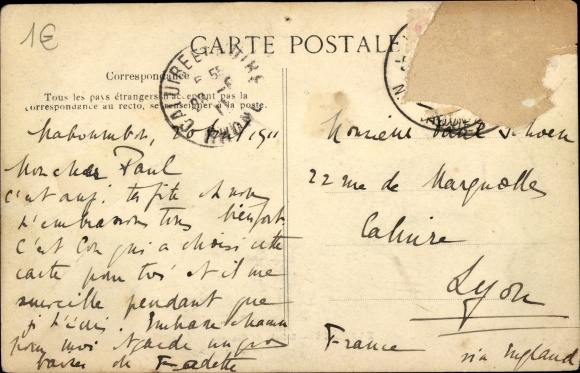 1€
CARTE POSTALE
Correspondance
Tous les pays étrangers n'acceptent pas la
correspondance au recto, se renseigner à la poste.
CALUIRE ET CUIRE
RHONE
1911
Mon cher Paul
c'est ta fête et nous
t'embrassons tous bien fort
c'est qui a choisi cette
carte pour toi et il me
surveille pendant que
je t'écris. Embrasse
pour moi et garde un gros
baiser de Fadette
Monsieur Paul
22 rue de Margnolles
Caluire
Lyon
France via England